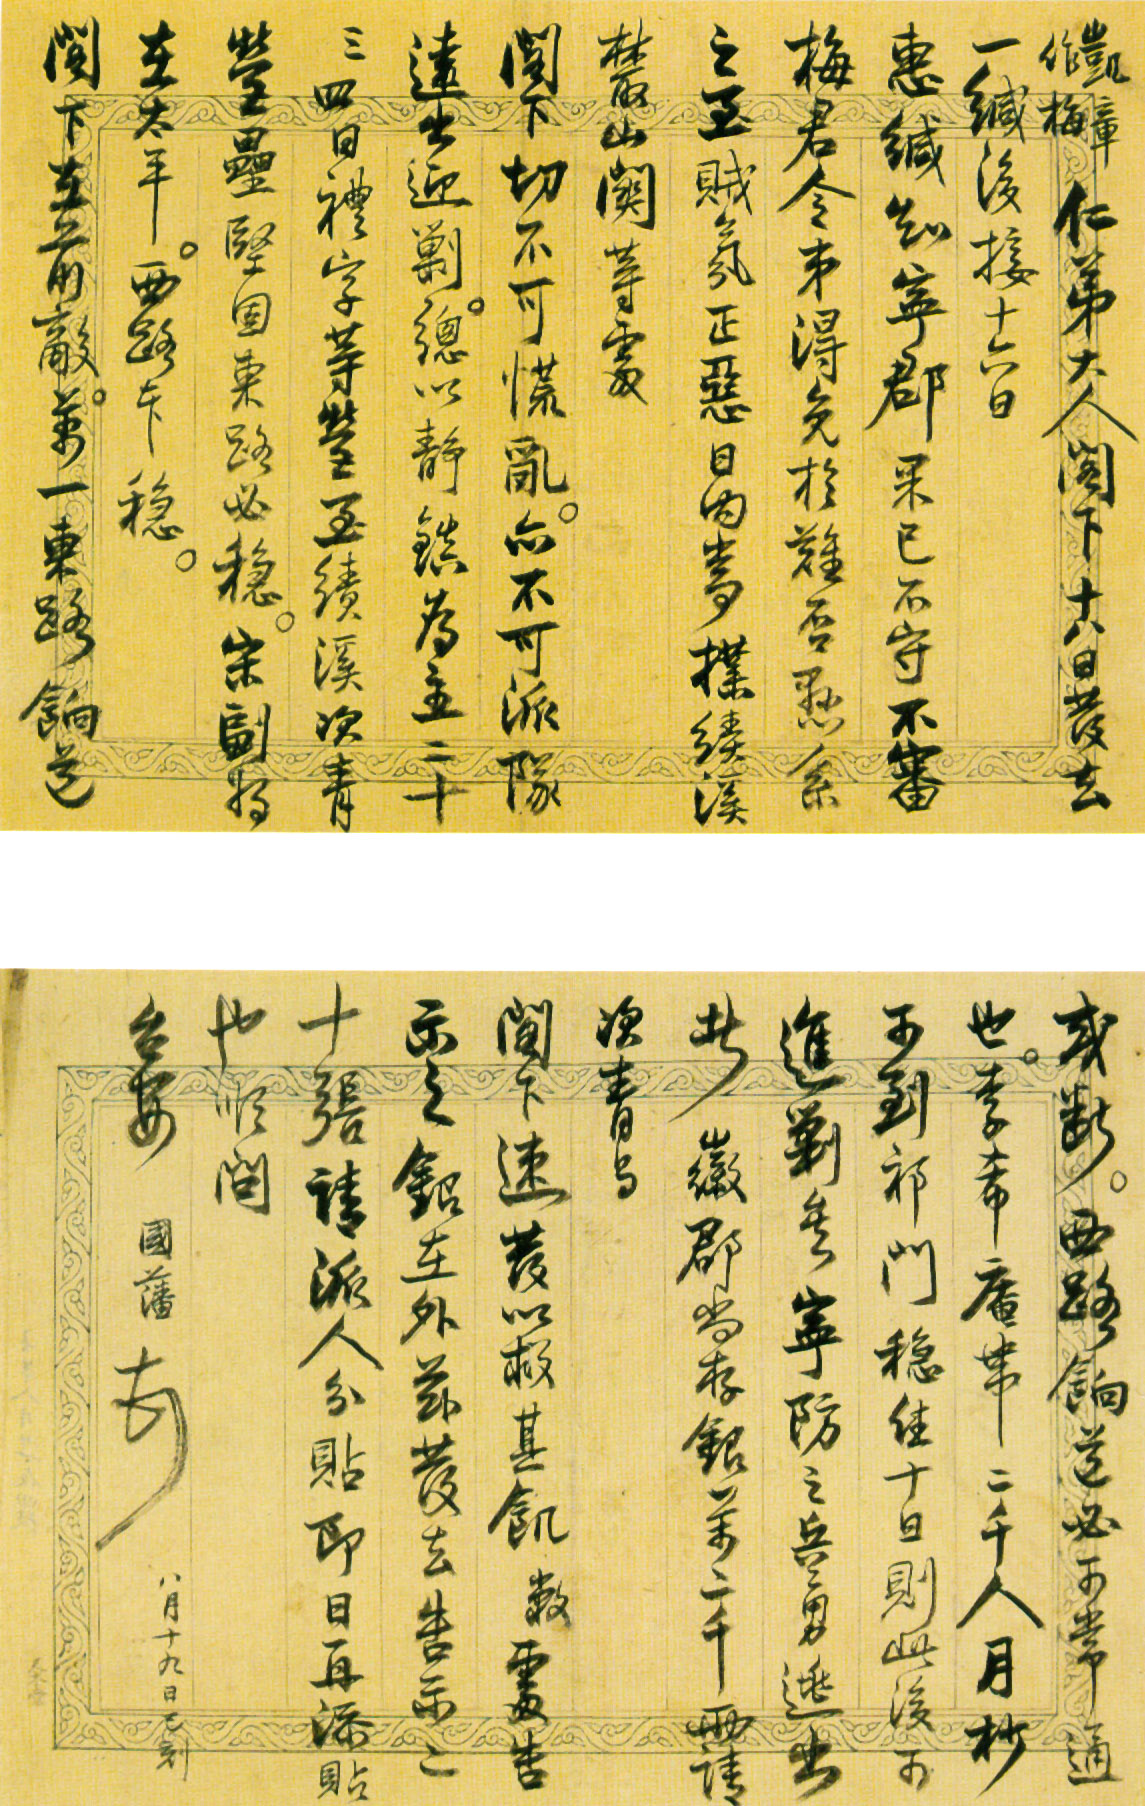 凱章
作梅
仁弟大人閣下十八日發去
一緘後接十六日
惠緘知寧郡果已不守不審
梅君令弟得免於難否懸系
之至賊氛正惡日內當撲績溪
叢山關等處
閣下切不可慌亂。亦不可派隊
遠出迎剿。總以靜鎮為主二十
三四日禮字等營至績溪次青
營壘堅固東路必穩。宋副將
在太平。西路亦穩。
閣下立足前敵。萬一東路餉道
或斷。西路餉道必可常通
也。李希庵帶二千人月抄
可到祁門穩住十日則此後可
進剿矣寧防之兵勇逃出
者徽郡尚存銀萬二千兩請
次青與
閣下速發以救其飢數處告
示之銀在外茲發去告示二
十張請派人分貼即日再添貼
也順問
台安
國藩
八月十九日巳刻